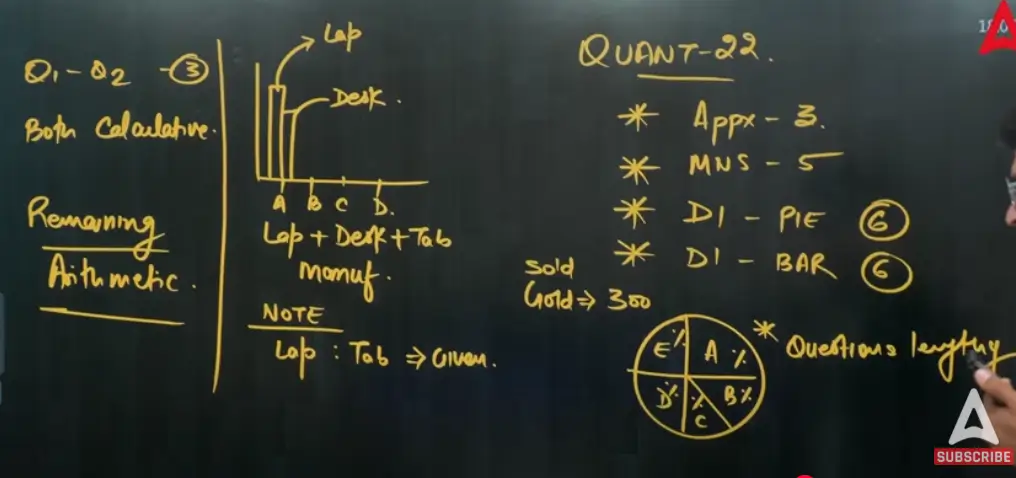 Q1 - Q2 - 3
Both Calculative.
Remaining
Arithmetic.
Lap
Desk.
A B C D.
Lap + Desk + Tab
Manuf.
NOTE
Lap : Tab ⇒ Given.
QUANT-22.
* Appx - 3.
* MNS - 5
* DI - PIE 6
* DI - BAR 6
Sold
Gold ⇒ 300
E % A %
D % % C B %
* Questions lengthy
SUBSCRIBE